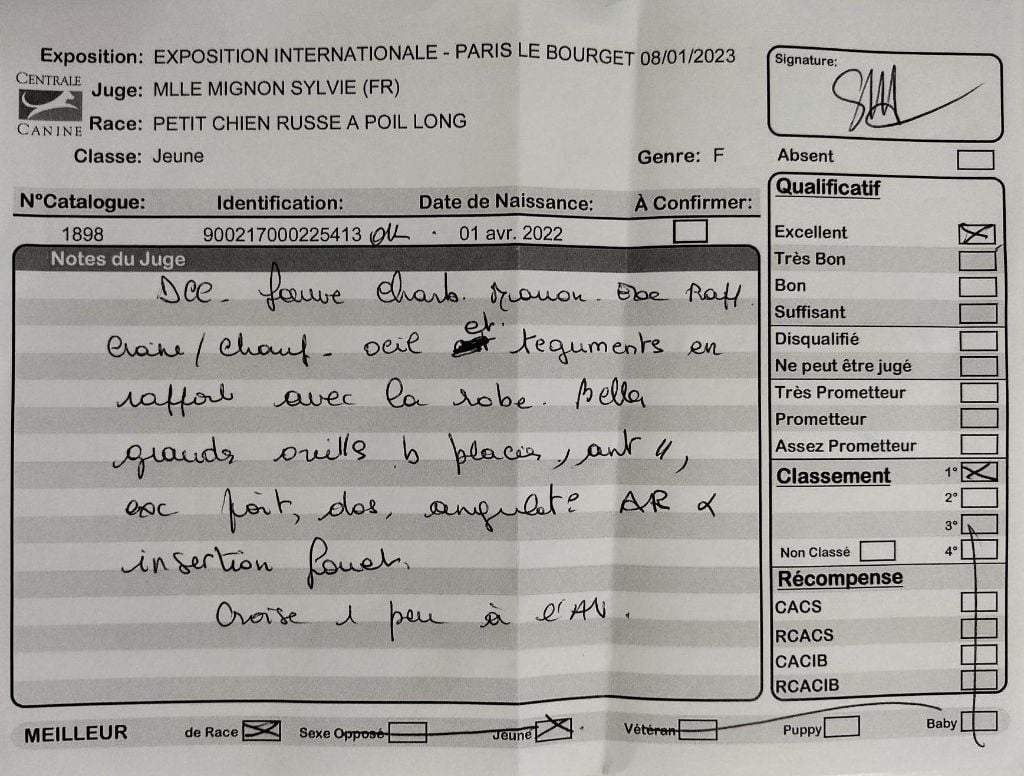 Exposition: EXPOSITION INTERNATIONALE - PARIS LE BOURGET 08/01/2023
CENTRALE CANINE
Juge: MLLE MIGNON SYLVIE (FR)
Race: PETIT CHIEN RUSSE A POIL LONG
Classe: Jeune Genre: F
N°Catalogue: Identification: Date de Naissance: À Confirmer:
1898 900217000225413 01 avr. 2022
Notes du Juge
DCC - fauve Charb. Rapp
Crane / Chanf - oeil et teguments en
rapport avec la robe. Belles
grands oreills b placées, ant ",
exc poit, dos, angulat° AR &
insertion fouet.
Croise 1 peu à l'AV.
Signature:
Absent
Qualificatif
Excellent
Très Bon
Bon
Suffisant
Disqualifié
Ne peut être jugé
Très Prometteur
Prometteur
Assez Prometteur
Classement 1°
2°
3°
Non Classé 4°
Récompense
CACS
RCACS
CACIB
RCACIB
MEILLEUR de Race Sexe Opposé Jeune Vétéran Puppy Baby